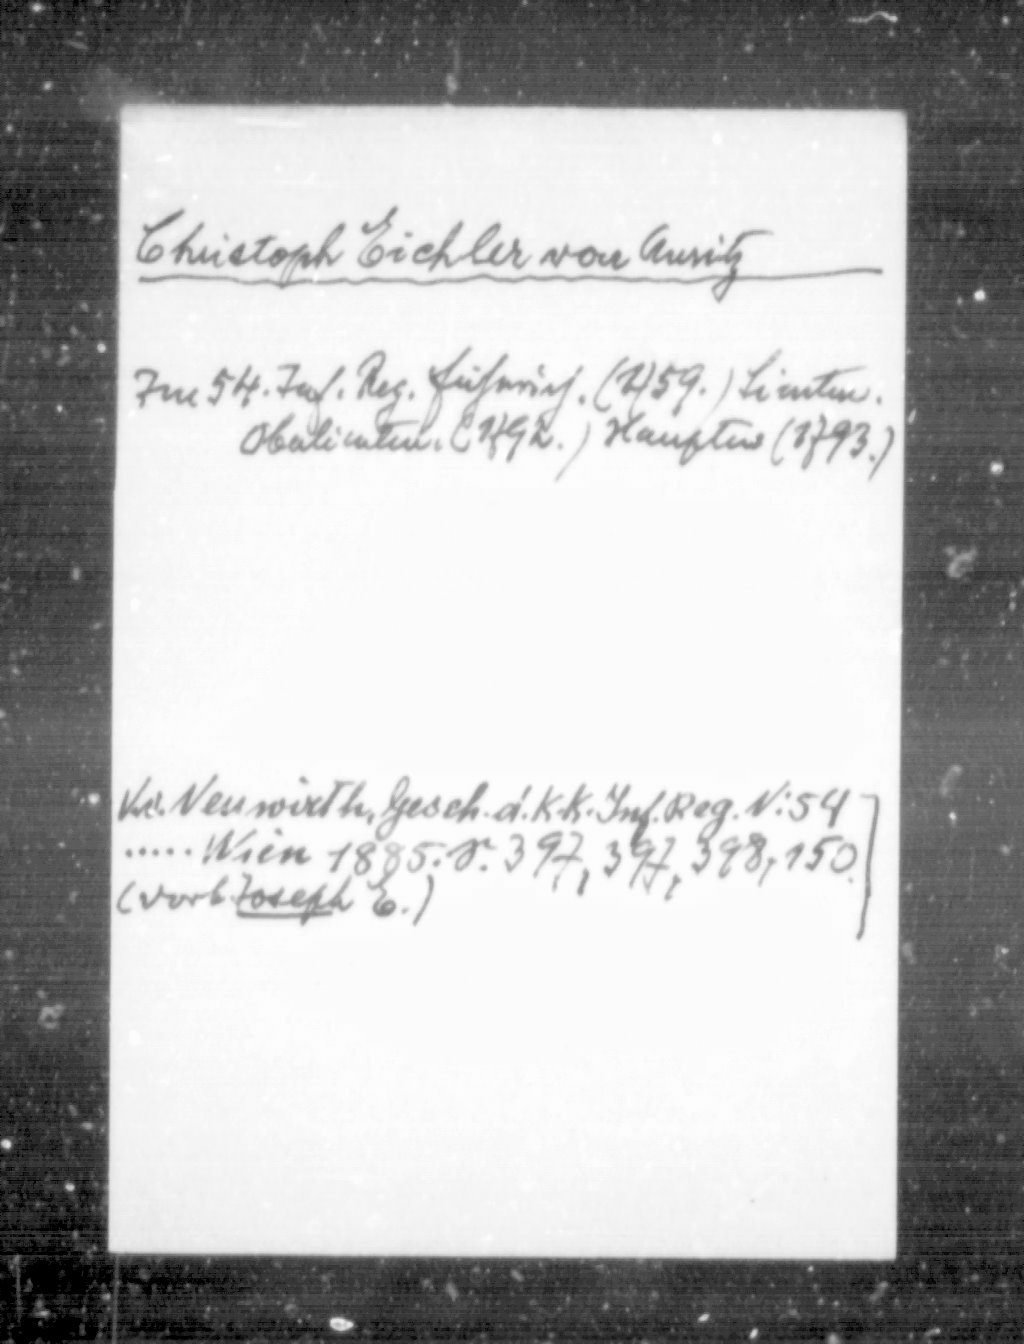 Christoph Eichler von Auritz
Im 54. Inf. Reg. Fähnrich. (1759.) Lieutn.
Oberlieutn. (1792.) Hauptm (1793.)
V. Neuwirth, Gesch. d. K. K. Inf. Reg. N: 54
..... Wien 1885. S. 397, 397, 398, 150
(dort Joseph E.)